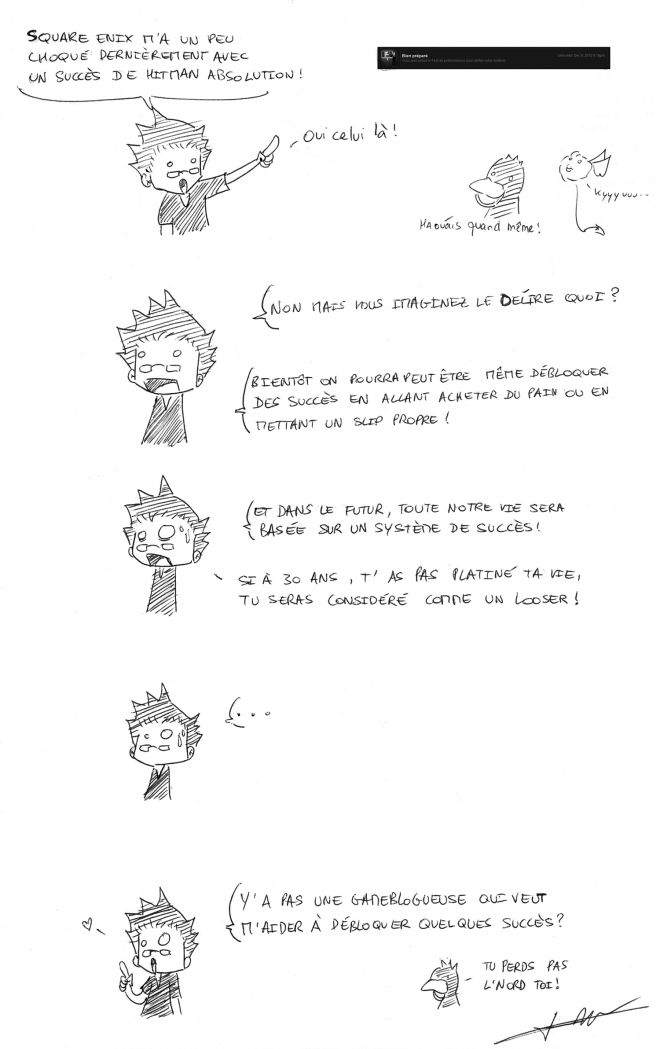 SQUARE ENIX M'A UN PEU
CHOQUÉ DERNIÈREMENT AVEC
UN SUCCÈS DE HITMAN ABSOLUTION!
Bien préparé
Oui celui là!
Mauvais quand même!
Kyyyuuu...
NON MAIS VOUS IMAGINEZ LE DELIRE QUOI?
BIENTÔT ON POURRA PEUT ÊTRE MÊME DÉBLOQUER
DES SUCCÈS EN ALLANT ACHETER DU PAIN OU EN
METTANT UN SLIP PROPRE!
ET DANS LE FUTUR, TOUTE NOTRE VIE SERA
BASÉE SUR UN SYSTÈME DE SUCCÈS!
SI À 30 ANS, T'AS PAS PLATINÉ TA VIE,
TU SERAS CONSIDÉRÉ COMME UN LOOSER!
...
Y'A PAS UNE GAMEBLOGUEUSE QUI VEUT
M'AIDER À DÉBLOQUER QUELQUES SUCCÈS?
TU PERDS PAS
L'NORD TOI!